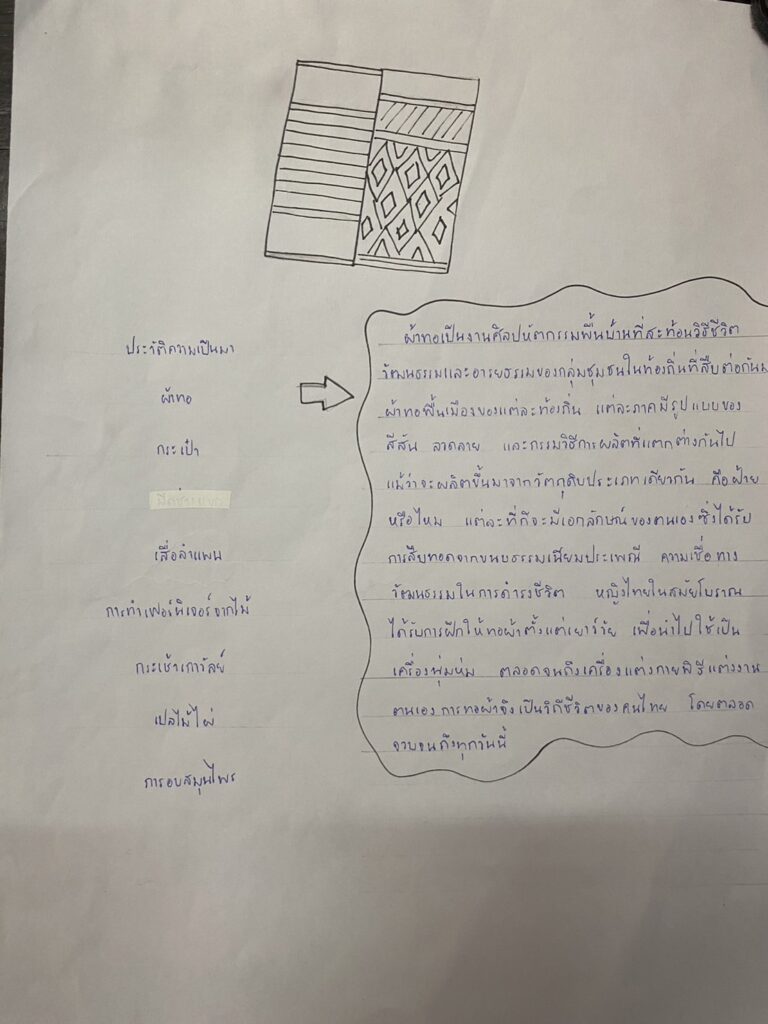 ประวัติความเป็นมา
ผ้าทอ
กระเป๋า
เสื่อลำแพน
การทำเฟอร์นิเจอร์จากไม้
กระเช้าเถาวัลย์
เปลไม้ไผ่
การอบสมุนไพร
ผ้าทอเป็นงานศิลปหัตถกรรมพื้นบ้านที่สะท้อนวิถีชีวิต
วัฒนธรรมและอารยธรรมของกลุ่มชุมชนในท้องถิ่นที่สืบต่อกันม
ผ้าทอพื้นเมืองของแต่ละท้องถิ่น แต่ละภาคมีรูปแบบของ
สีสัน ลวดลาย และกรรมวิธีการผลิตที่แตกต่างกันไป
แม้ว่าจะผลิตขึ้นมาจากวัตถุดิบประเภทเดียวกัน คือฝ้าย
หรือไหม แต่ละที่ก็จะมีเอกลักษณ์ของตนเองซึ่งได้รับ
การสืบทอดจากขนบธรรมเนียมประเพณี ความเชื่อทาง
วัฒนธรรมในการดำรงชีวิต หญิงไทยในสมัยโบราณ
ได้รับการฝึกให้ทอผ้าตั้งแต่เยาว์วัย เพื่อนำไปใช้เป็น
เครื่องนุ่งห่ม ตลอดจนถึงเครื่องแต่งกายพิธีแต่งงาน
ตนเอง การทอผ้าจึงเป็นวิถีชีวิตของคนไทย โดยตลอด
จวบจนถึงทุกวันนี้